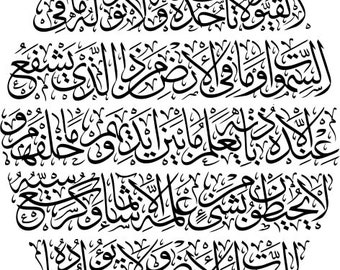 القيوم لا تأخذه سنة ولا نوم له ما في
السموات وما في الأرض من ذا الذي يشفع
عنده إلا بإذنه يعلم ما بين أيديهم وما خلفهم و
لا يحيطون بشيء من علمه إلا بما شاء وسع كرسيه
السموات والأرض ولا يؤده